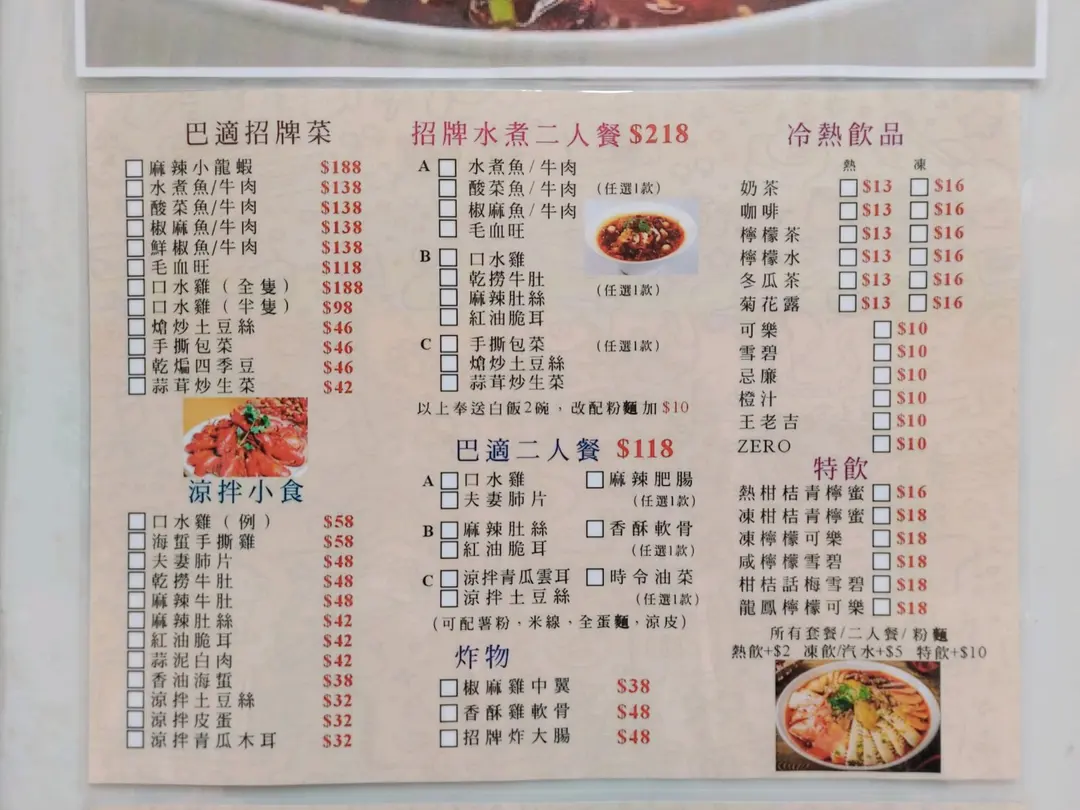 巴適招牌菜
麻辣小龍蝦 $188
水煮魚/牛肉 $138
酸菜魚/牛肉 $138
椒麻魚/牛肉 $138
鮮椒魚/牛肉 $138
毛血旺 $118
口水雞(全隻) $188
口水雞(半隻) $98
熗炒土豆絲 $46
手撕包菜 $46
乾煸四季豆 $46
蒜茸炒生菜 $42
涼拌小食
口水雞(例) $58
海蜇手撕雞 $58
夫妻肺片 $48
乾撈牛肚 $48
麻辣牛肚 $48
麻辣肚絲 $42
紅油脆耳 $42
蒜泥白肉 $42
香油海蜇 $38
涼拌土豆絲 $32
涼拌皮蛋 $32
涼拌青瓜木耳 $32
招牌水煮二人餐 $218
A 水煮魚/牛肉
酸菜魚/牛肉 (任選1款)
椒麻魚/牛肉
毛血旺
B 口水雞
乾撈牛肚
(任選1款)
麻辣肚絲
紅油脆耳
C 手撕包菜 (任選1款)
熗炒土豆絲
蒜茸炒生菜
以上奉送白飯2碗,改配粉麵加 $10
巴適二人餐 $118
A 口水雞 麻辣肥腸
夫妻肺片 (任選1款)
B 麻辣肚絲 香酥軟骨
紅油脆耳 (任選1款)
C 涼拌青瓜雲耳 時令油菜
涼拌土豆絲 (任選1款)
(可配薯粉、米線、全蛋麵,涼皮)
炸物
椒麻雞中翼 $38
香酥雞軟骨 $48
招牌炸大腸 $48
冷熱飲品
熱 凍
奶茶 $13 $16
咖啡 $13 $16
檸檬茶 $13 $16
檸檬水 $13 $16
冬瓜茶 $13 $16
菊花露 $13 $16
可樂 $10
雪碧 $10
忌廉 $10
橙汁 $10
王老吉 $10
ZERO $10
特飲
熱柑桔青檸蜜 $16
凍柑桔青檸蜜 $18
凍檸檬可樂 $18
咸檸檬雪碧 $18
柑桔話梅雪碧 $18
龍鳳檸檬可樂 $18
所有套餐/二人餐/粉麵
熱飲+$2 凍飲/汽水+$5 特飲+$10